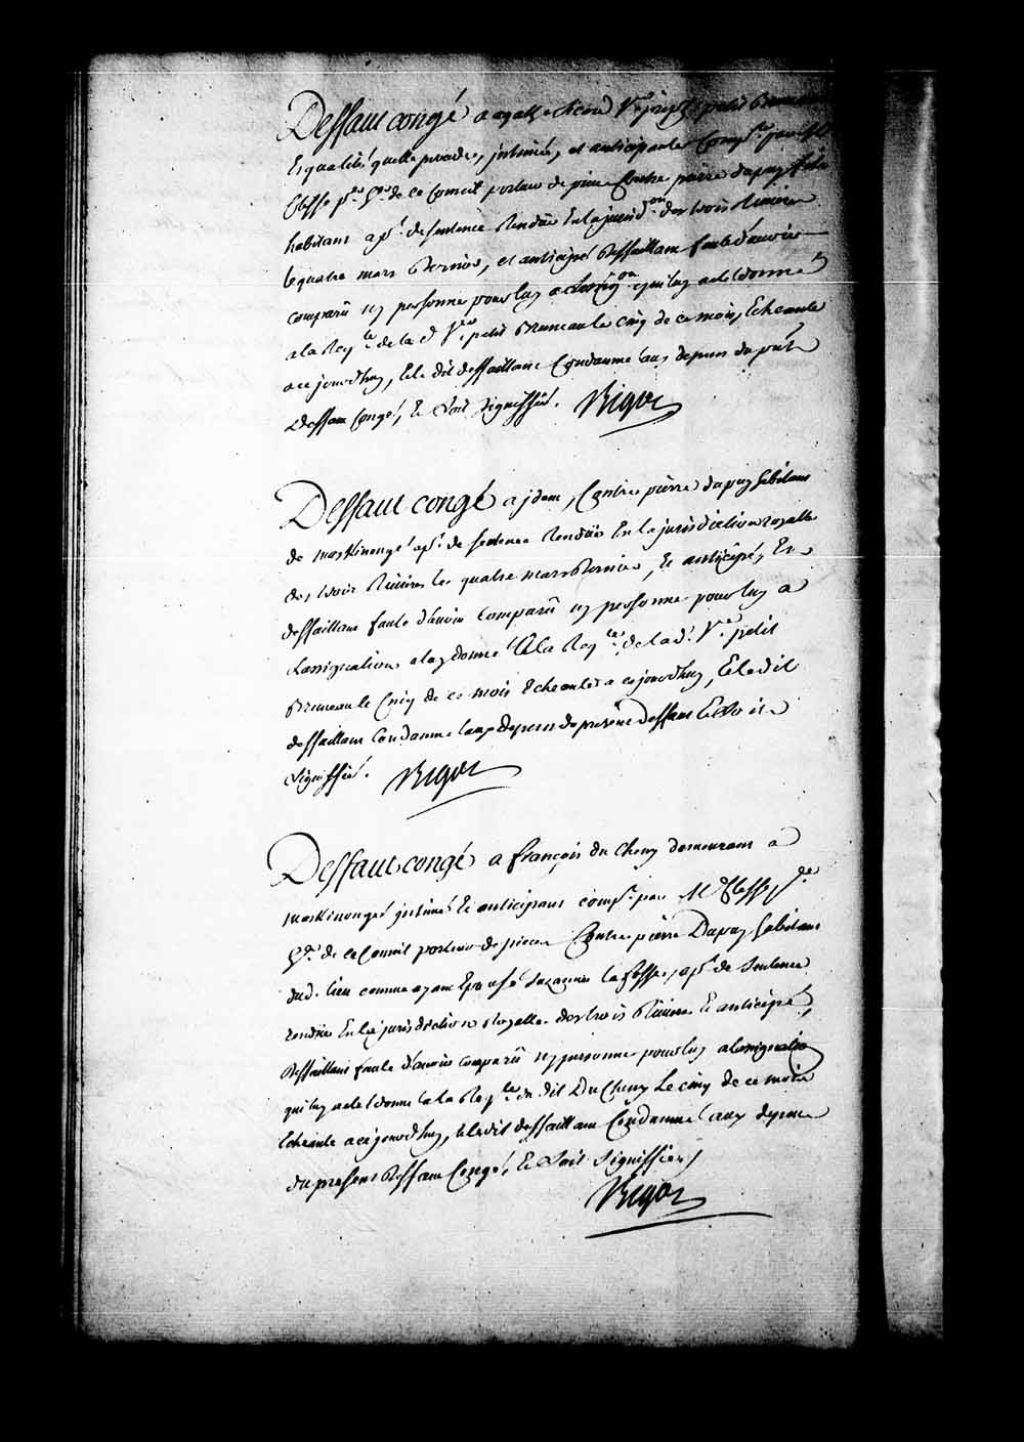 Deffaut congé a agathe Sicard V.e joseph petit Bruneau
Es qualités quelle procede, jntimée, et anticipante Comp.te par
Clesse p.er h.er de ce Conseil porteur de pieces Contre pierre dupuy
habitant ap.t de sentence Rendüe En la jurisd.on des trois Rivieres
le quatre mars dernier, et anticipé deffaillant faute d'avoir
comparu ny personne pour luy a Lassig.on qui luy a eté donnée
a la Req.te de la d. V.e petit Bruneau le cinq de ce mois, Echeante
a ce jourd'huy, & le dit deffaillant Condamné aux depens du p.nt
deffaut Congé, & soit signiffié. Bigot
Deffaut congé a jdem, Contre pierre dupuy habitant
de maskinongé ap.t de sentence Rendüe En la jurisdiction royalle
des trois Rivieres le quatre mars dernier, & anticipé, &
deffaillant faute d'avoir Comparu ny personne pour luy a
Lassignation a luy donnée a la Req.te de la d. V.e petit
Bruneau le Cinq de ce mois Echeante a ce jourd'huy, & le dit
deffaillant Condamné aux depens du present deffaut & soit
signiffié. Bigot
Deffaut congé a françois du Cheny demeurant a
maskinongé jntimé & anticipant comp.t par M.e Clesse
h.er de ce Conseil porteur de pieces Contre pierre Dupuy habitant
dud. lieu comme ayant Epousé Suzanne la fosse, ap.t de Sentence
rendüe En la jurisdiction Royalle des trois Rivieres & anticipé,
deffaillant faute d'avoir comparu ny personne pour luy a lassignation
qui luy a eté donnée a la Req.te du dit Du Cheny Le cinq de ce mois
Echeante a ce jourd'huy, & le dit deffaillant Condamné aux depens
du present deffaut Congé, & soit signiffié /
Bigot